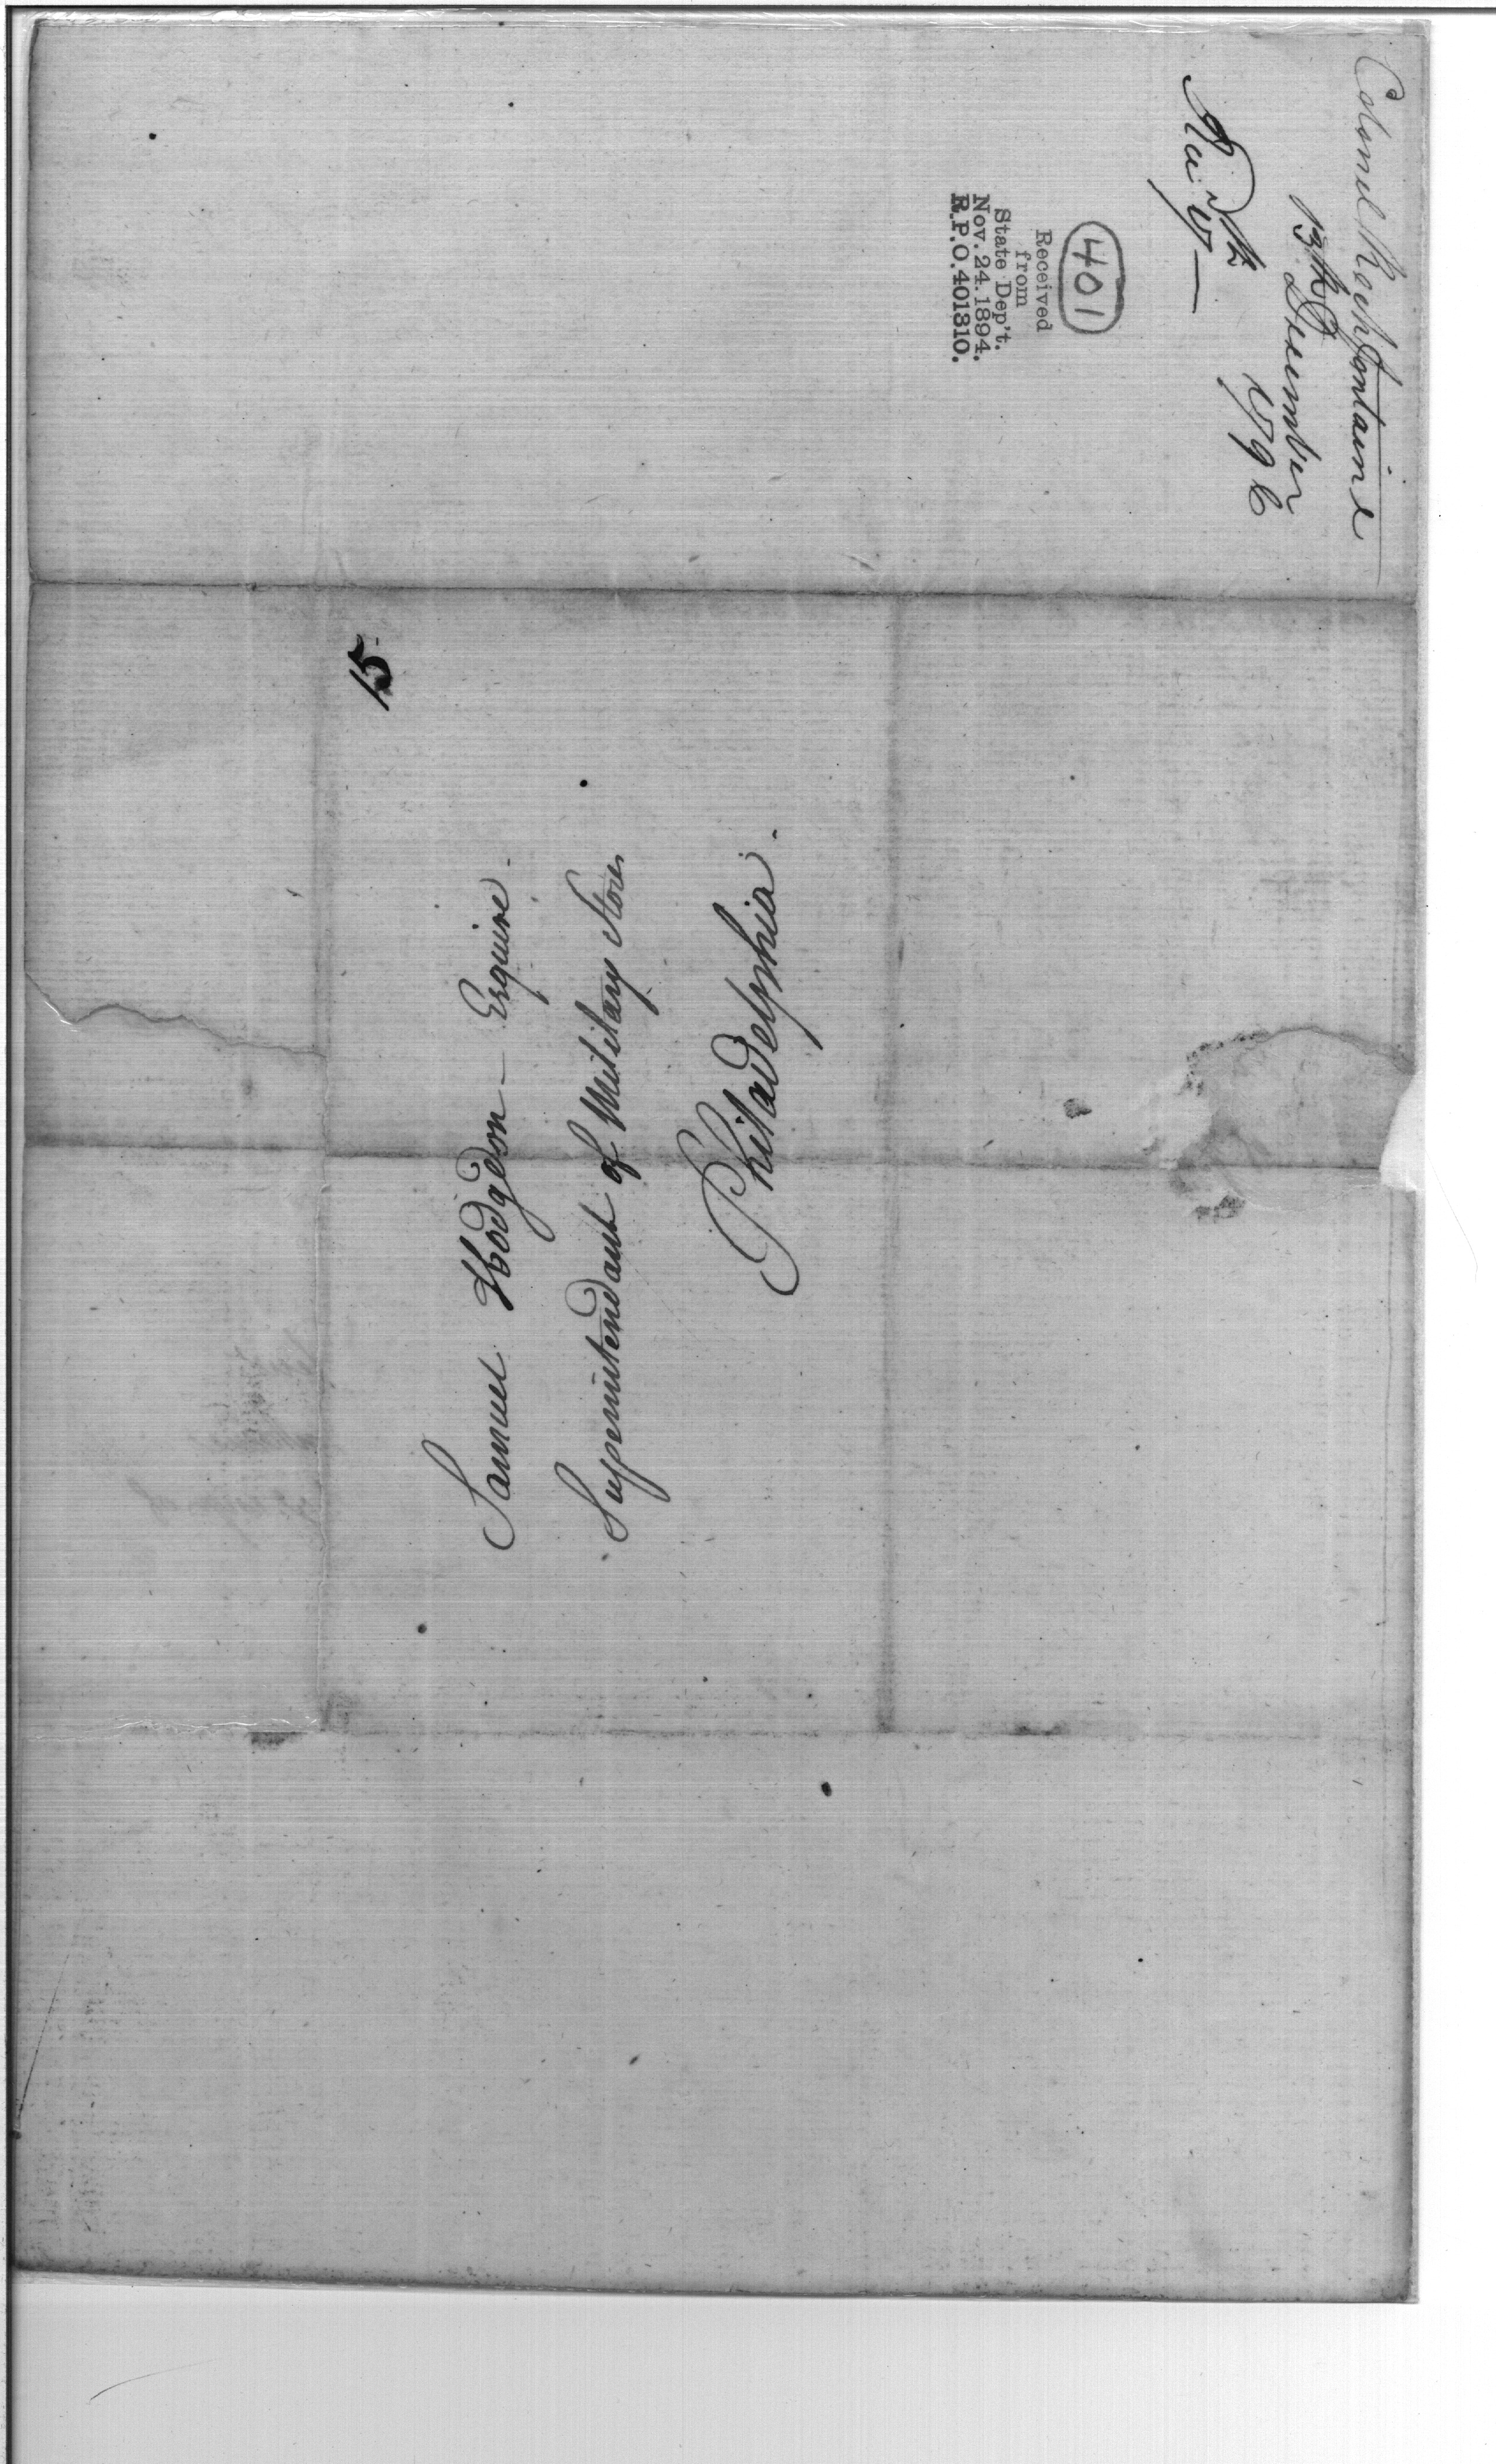 Colonel Rochfontaine
13th December
1796
401
Received
from
State Dep't.
Nov. 24. 1894.
R.P.O. 401310.
15
Samuel Hodgdon - Esquire.
Superintendant of Military Stores
Philadelphia.